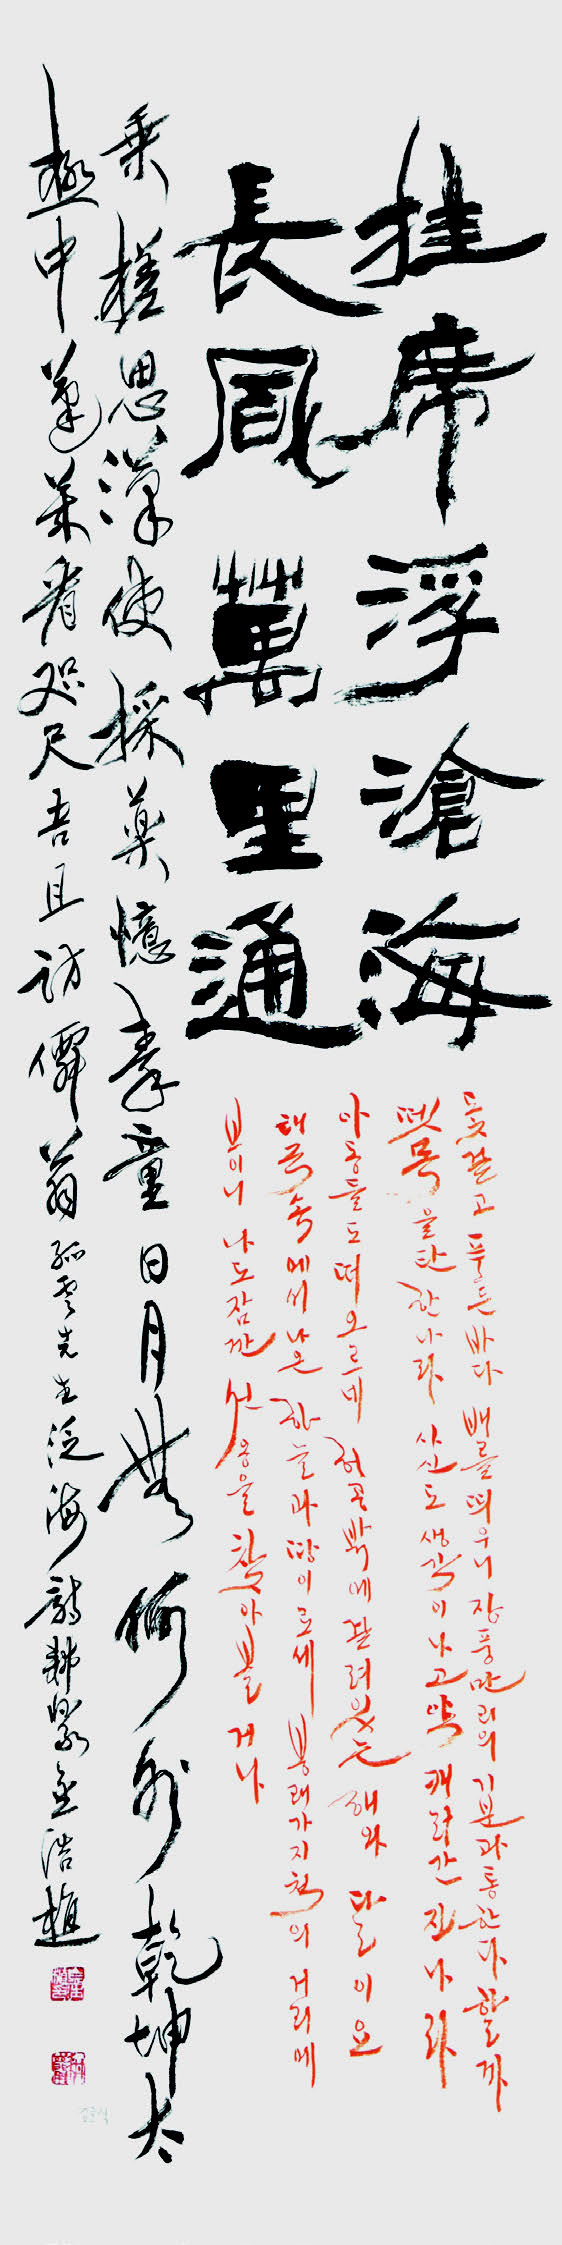 挂席浮滄海
長風萬里通
乗槎思漢使採藥憶秦童日月無何外乾坤太
極中蓬萊看咫尺吾且訪僊翁孤雲先生泛海詩
돛 걸고 푸른 바다 배를 띄우니 장풍만리의 기분과 통한다 할까
뗏목을 탄 한나라 사신도 생각이 나고 약 캐러 간 진나라
아동들도 떠오르네 허공밖에 걸려있는 해와 달이요
태극속에서 나온 하늘과 땅이로세 봉래가 지척의 거리에
보이니 나도 잠깐 선옹을 찾아볼거나